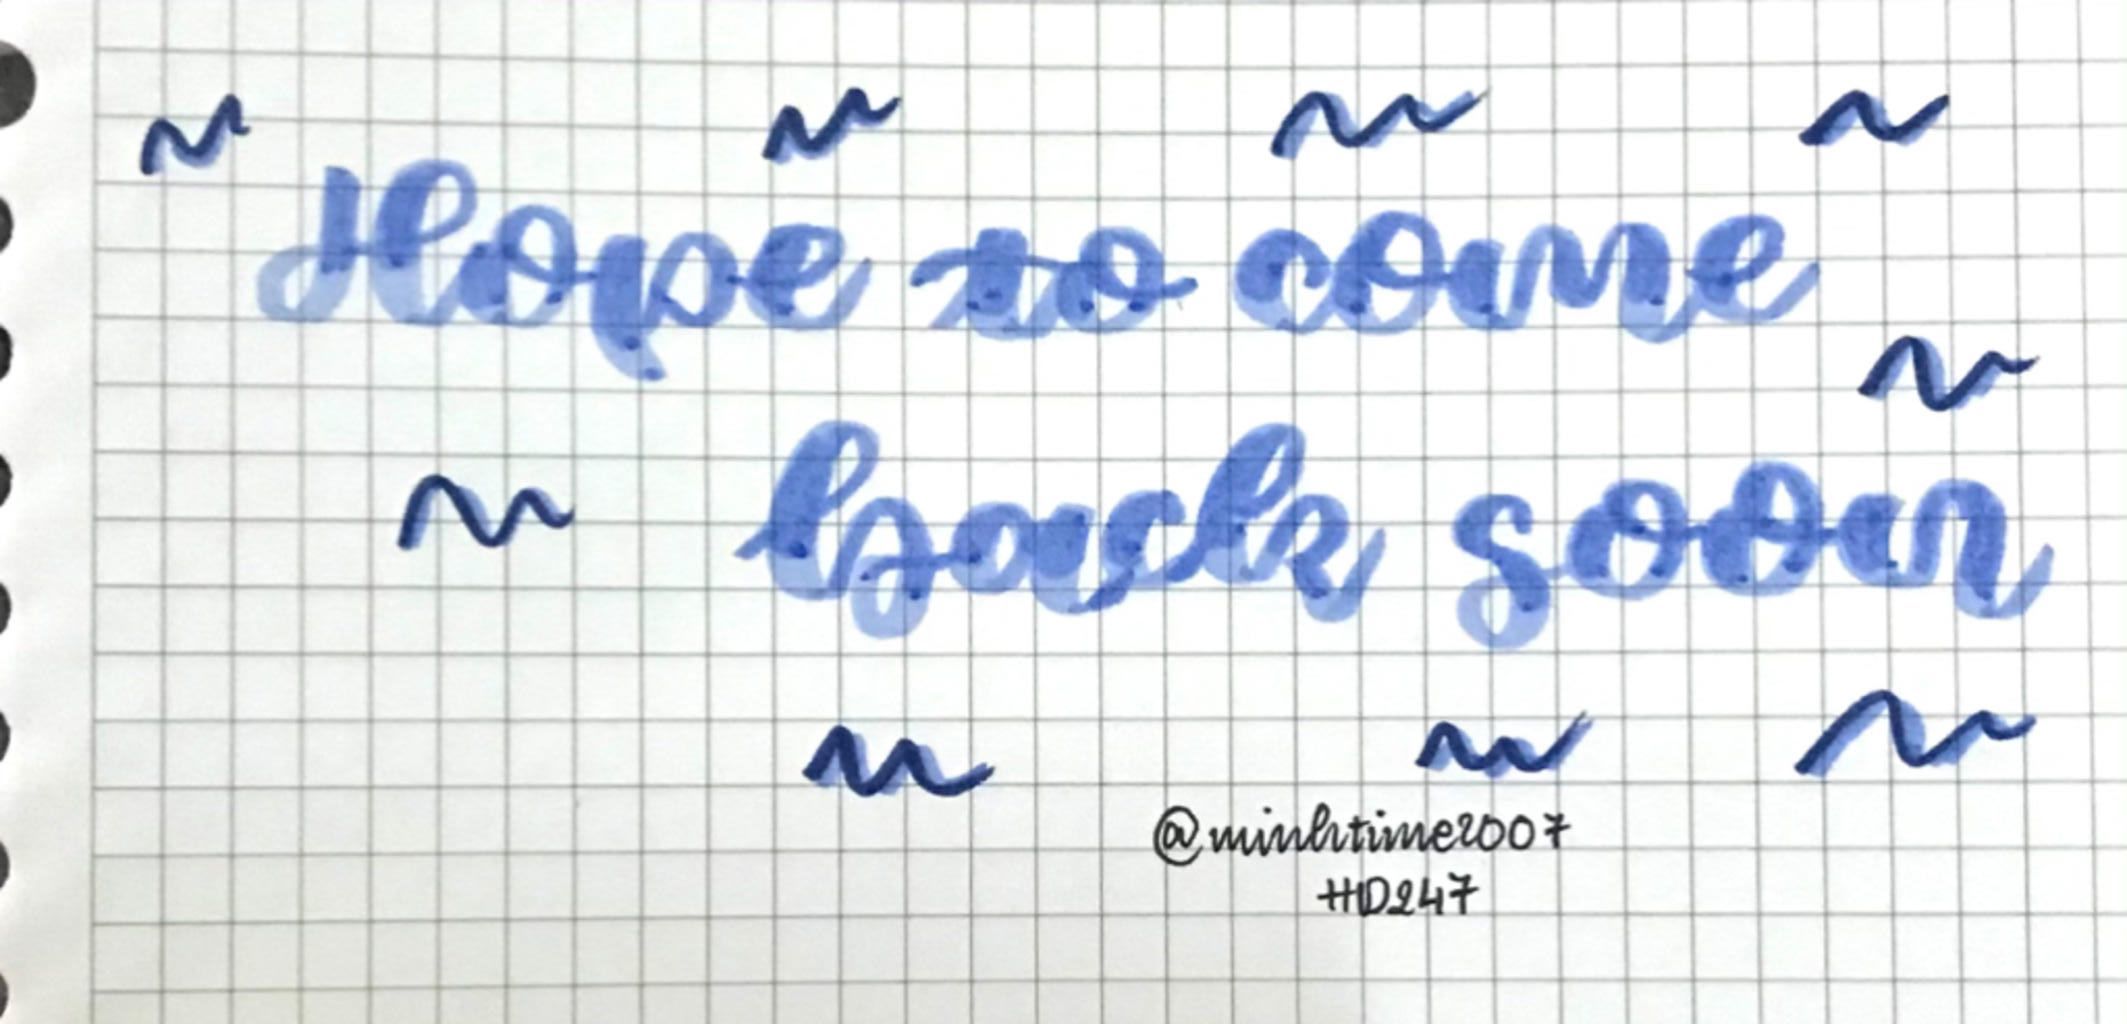 Hope to come
back soon
@minhtime2007
#D247